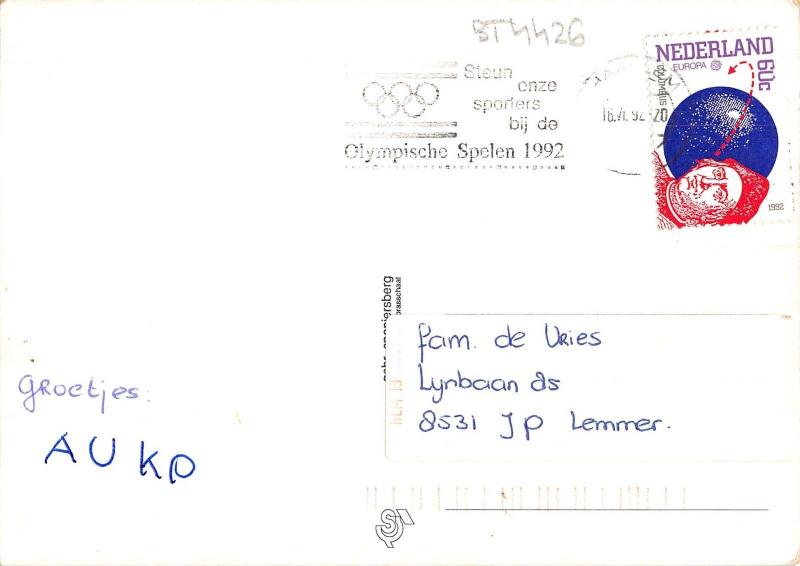 BT4426
Steun
onze
sporters
bij de
Olympische Spelen 1992
16.VI.92-20
NEDERLAND
EUROPA
60c
COLUMBUS
1992
gebr. spanjersberg
Groetjes:
AUKO
fam. de Vries
Lijnbaan 85
8531 JP Lemmer.